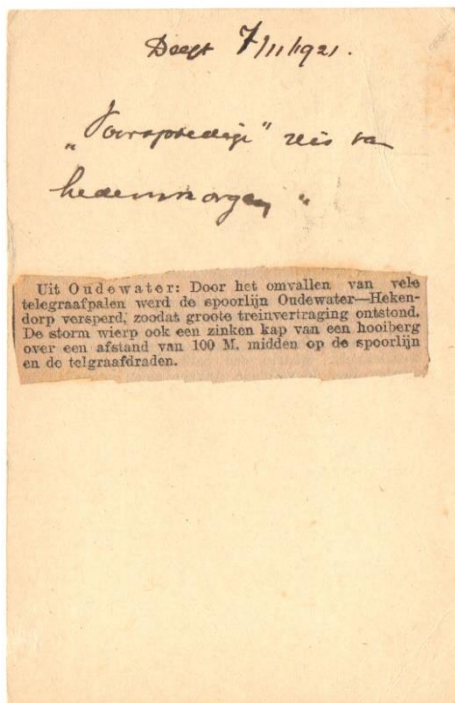 Delft 7/11/1921.
„Voorspoedige” reis van
hedenmorgen „
Uit Oudewater: Door het omvallen van vele
telegraafpalen werd de spoorlijn Oudewater—Heken-
dorp versperd, zoodat groote treinvertraging ontstond.
De storm wierp ook een zinken kap van een hooiberg
over een afstand van 100 M. midden op de spoorlijn
en de telgraafdraden.